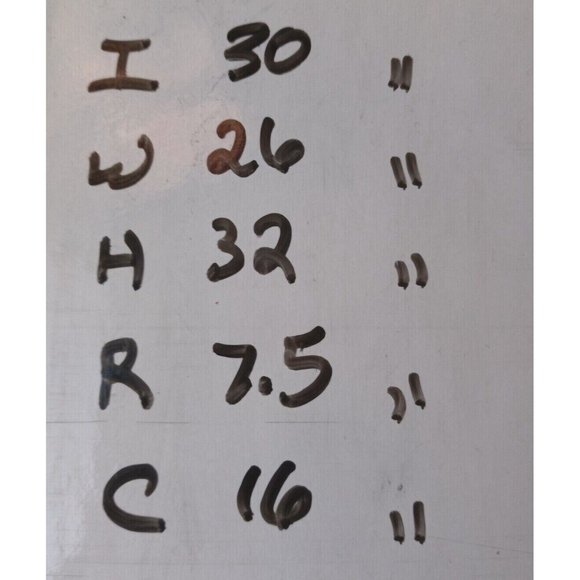 I 30 "
W 26 "
H 32 "
R 7.5 "
C 16 "